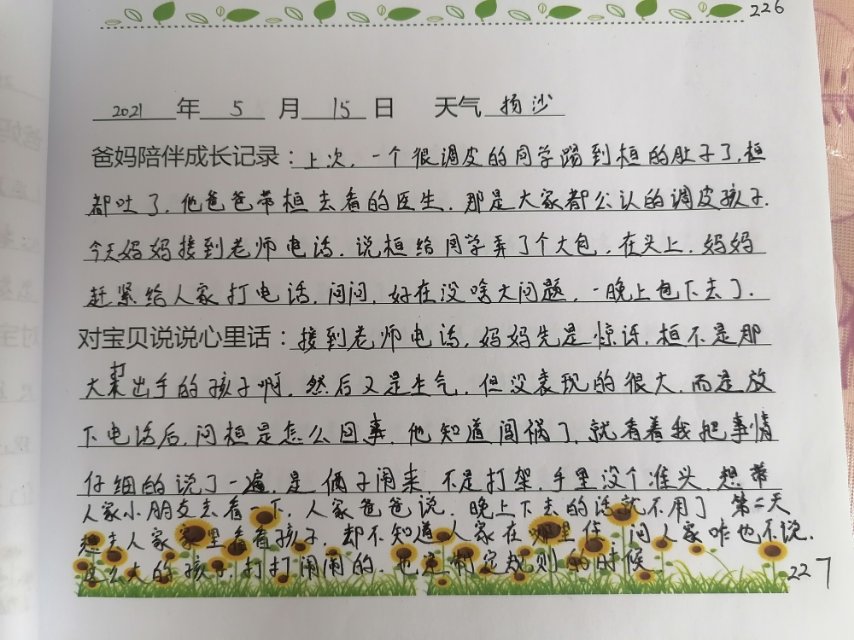 226
2021 年 5 月 15 日 天气 扬沙
爸妈陪伴成长记录：上次，一个很调皮的同学踢到桓的肚子了，桓
都吐了，他爸爸带桓去看的医生．那是大家都公认的调皮孩子．
今天妈妈接到老师电话，说桓给同学弄了个大包，在头上，妈妈
赶紧给人家打电话，问问，好在没啥大问题，一晚上包下去了．
对宝贝说说心里话：接到老师电话，妈妈先是惊讶，桓不是那
大打出手的孩子啊，然后又是生气，但没表现的很大，而是放
下电话后，问桓是怎么回事，他知道闯祸了，就看着我把事情
仔细的说了一遍，是俩子闹来，不是打架，手里没个准头，想带
人家小朋友去看一下，人家爸爸说，晚上下去的话就不用了 第二天
想去人家家里看看孩子，却不知道人家在哪里住，问人家咋也不说．
这么大的孩子，打打闹闹的，也是制定规则的时候
227